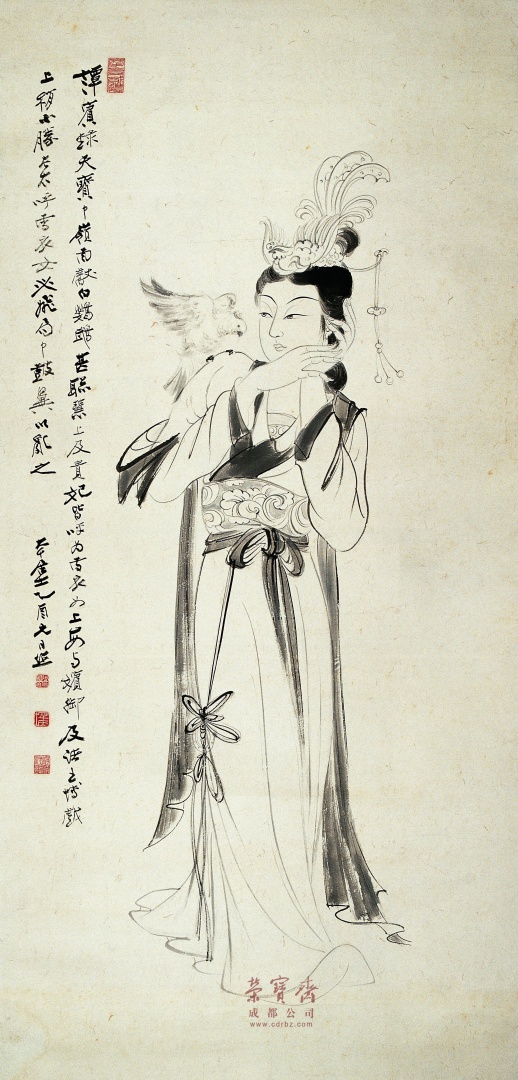 譚賓錄天寶中嶺南獻白鸚鵡甚聰慧上及貴妃皆呼為雪衣女上每與嬪御及諸王博戲
上稍不勝左右呼雪衣女必飛局中鼓翼以亂之
乙酉元日
榮寶齋
成都公司
www.cdrbz.com